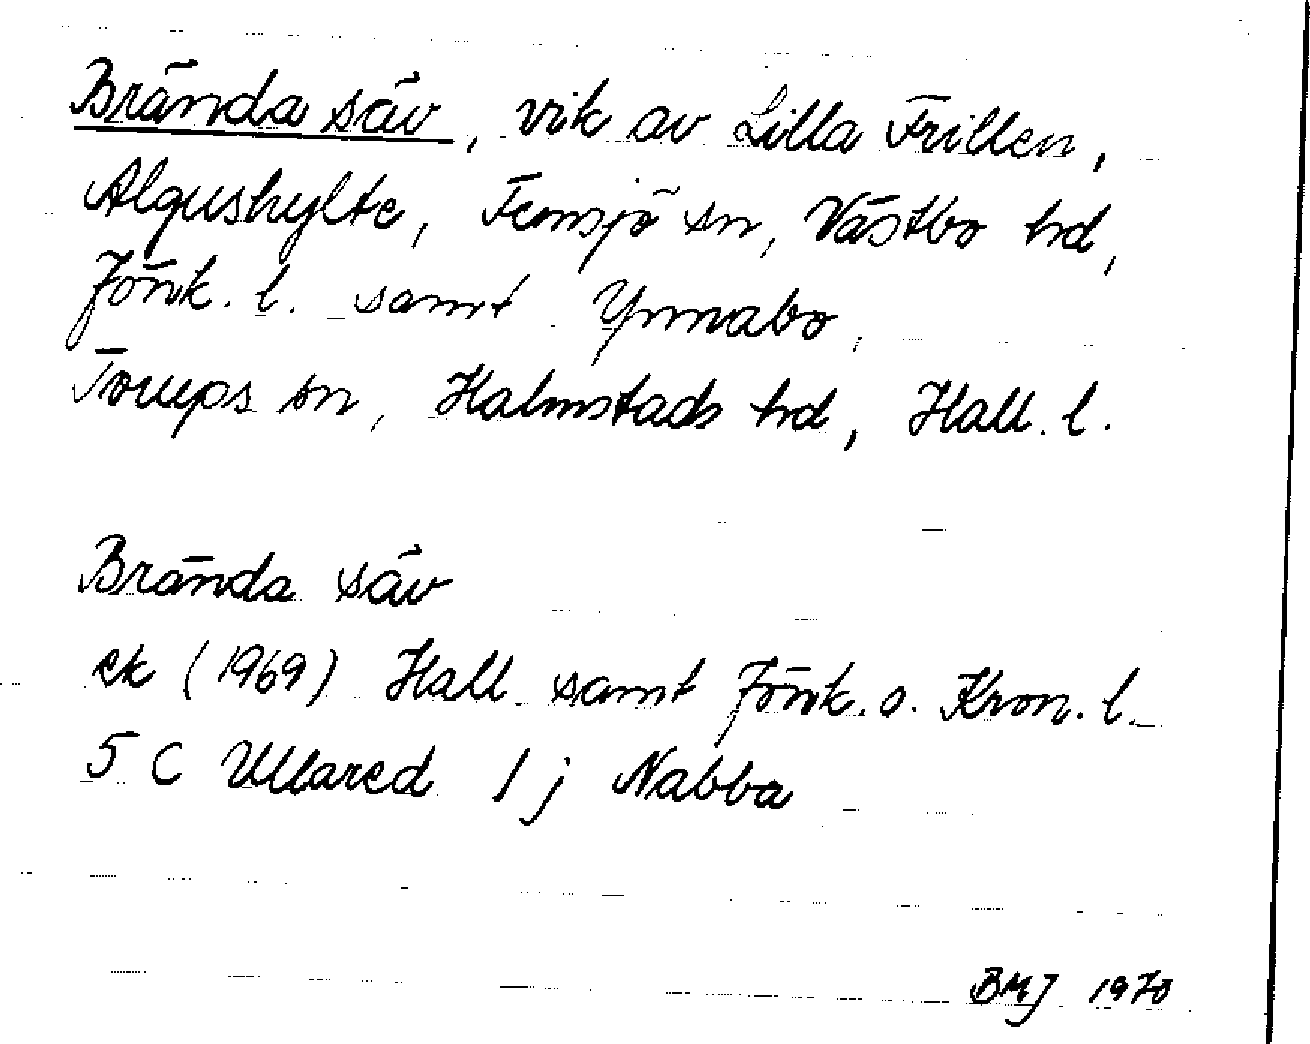 Brända säv, vik av Lilla Frillen,
Algushylte, Femsjö sn, Västbo hd,
Jönk. l. samt Ynnabo,
Torups sn, Halmstads hd, Hall. l.
Brända säv
ek (1969) Hall. samt Jönk. o. Kron. l.
5 C Ullared 1 j Nabba
BMJ 1970